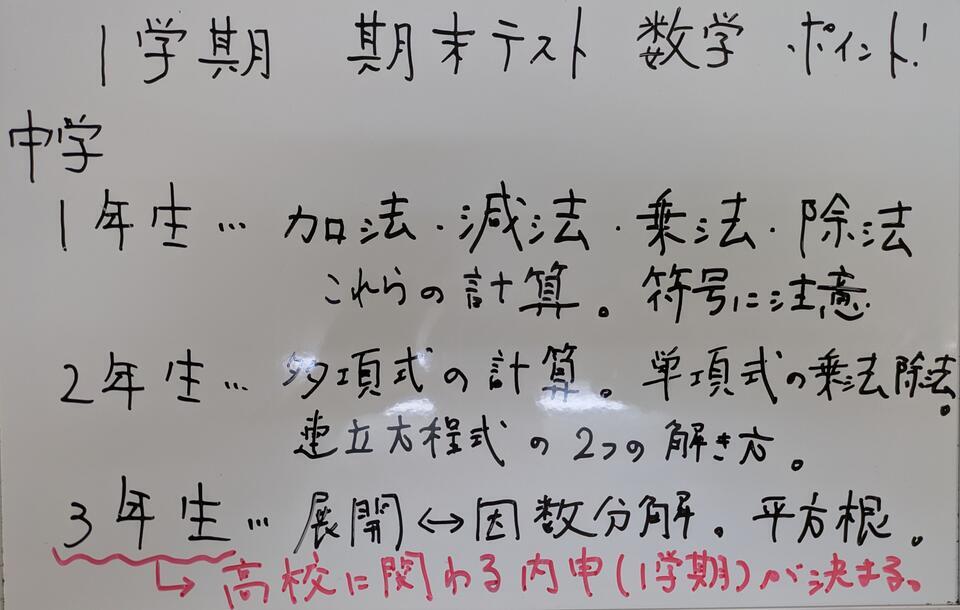 1学期 期末テスト 数学 ポイント!
中学
1年生… 加法・減法・乗法・除法
これらの計算。符号に注意
2年生… 多項式の計算。単項式の乗法除法。
連立方程式の2つの解き方。
3年生… 展開↔因数分解。平方根。
↳高校に関わる内申(1学期)が決まる。